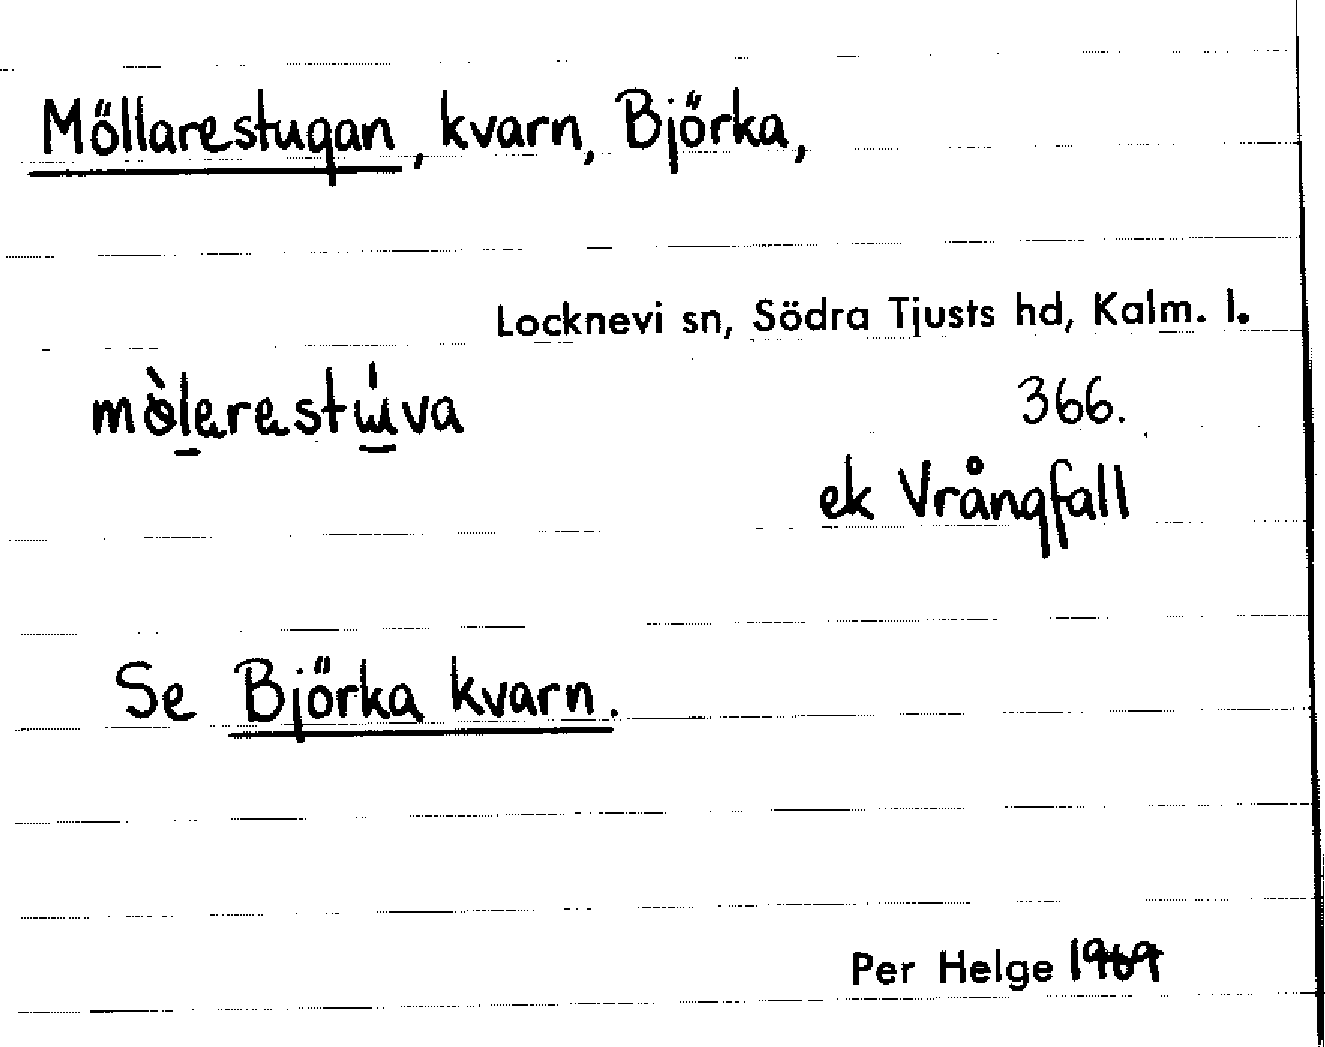 Möllarestugan, kvarn, Björka,
Locknevi sn, Södra Tjusts hd, Kalm. l.
366.
ek Vrångfall
Se Björka kvarn.
Per Helge 1969